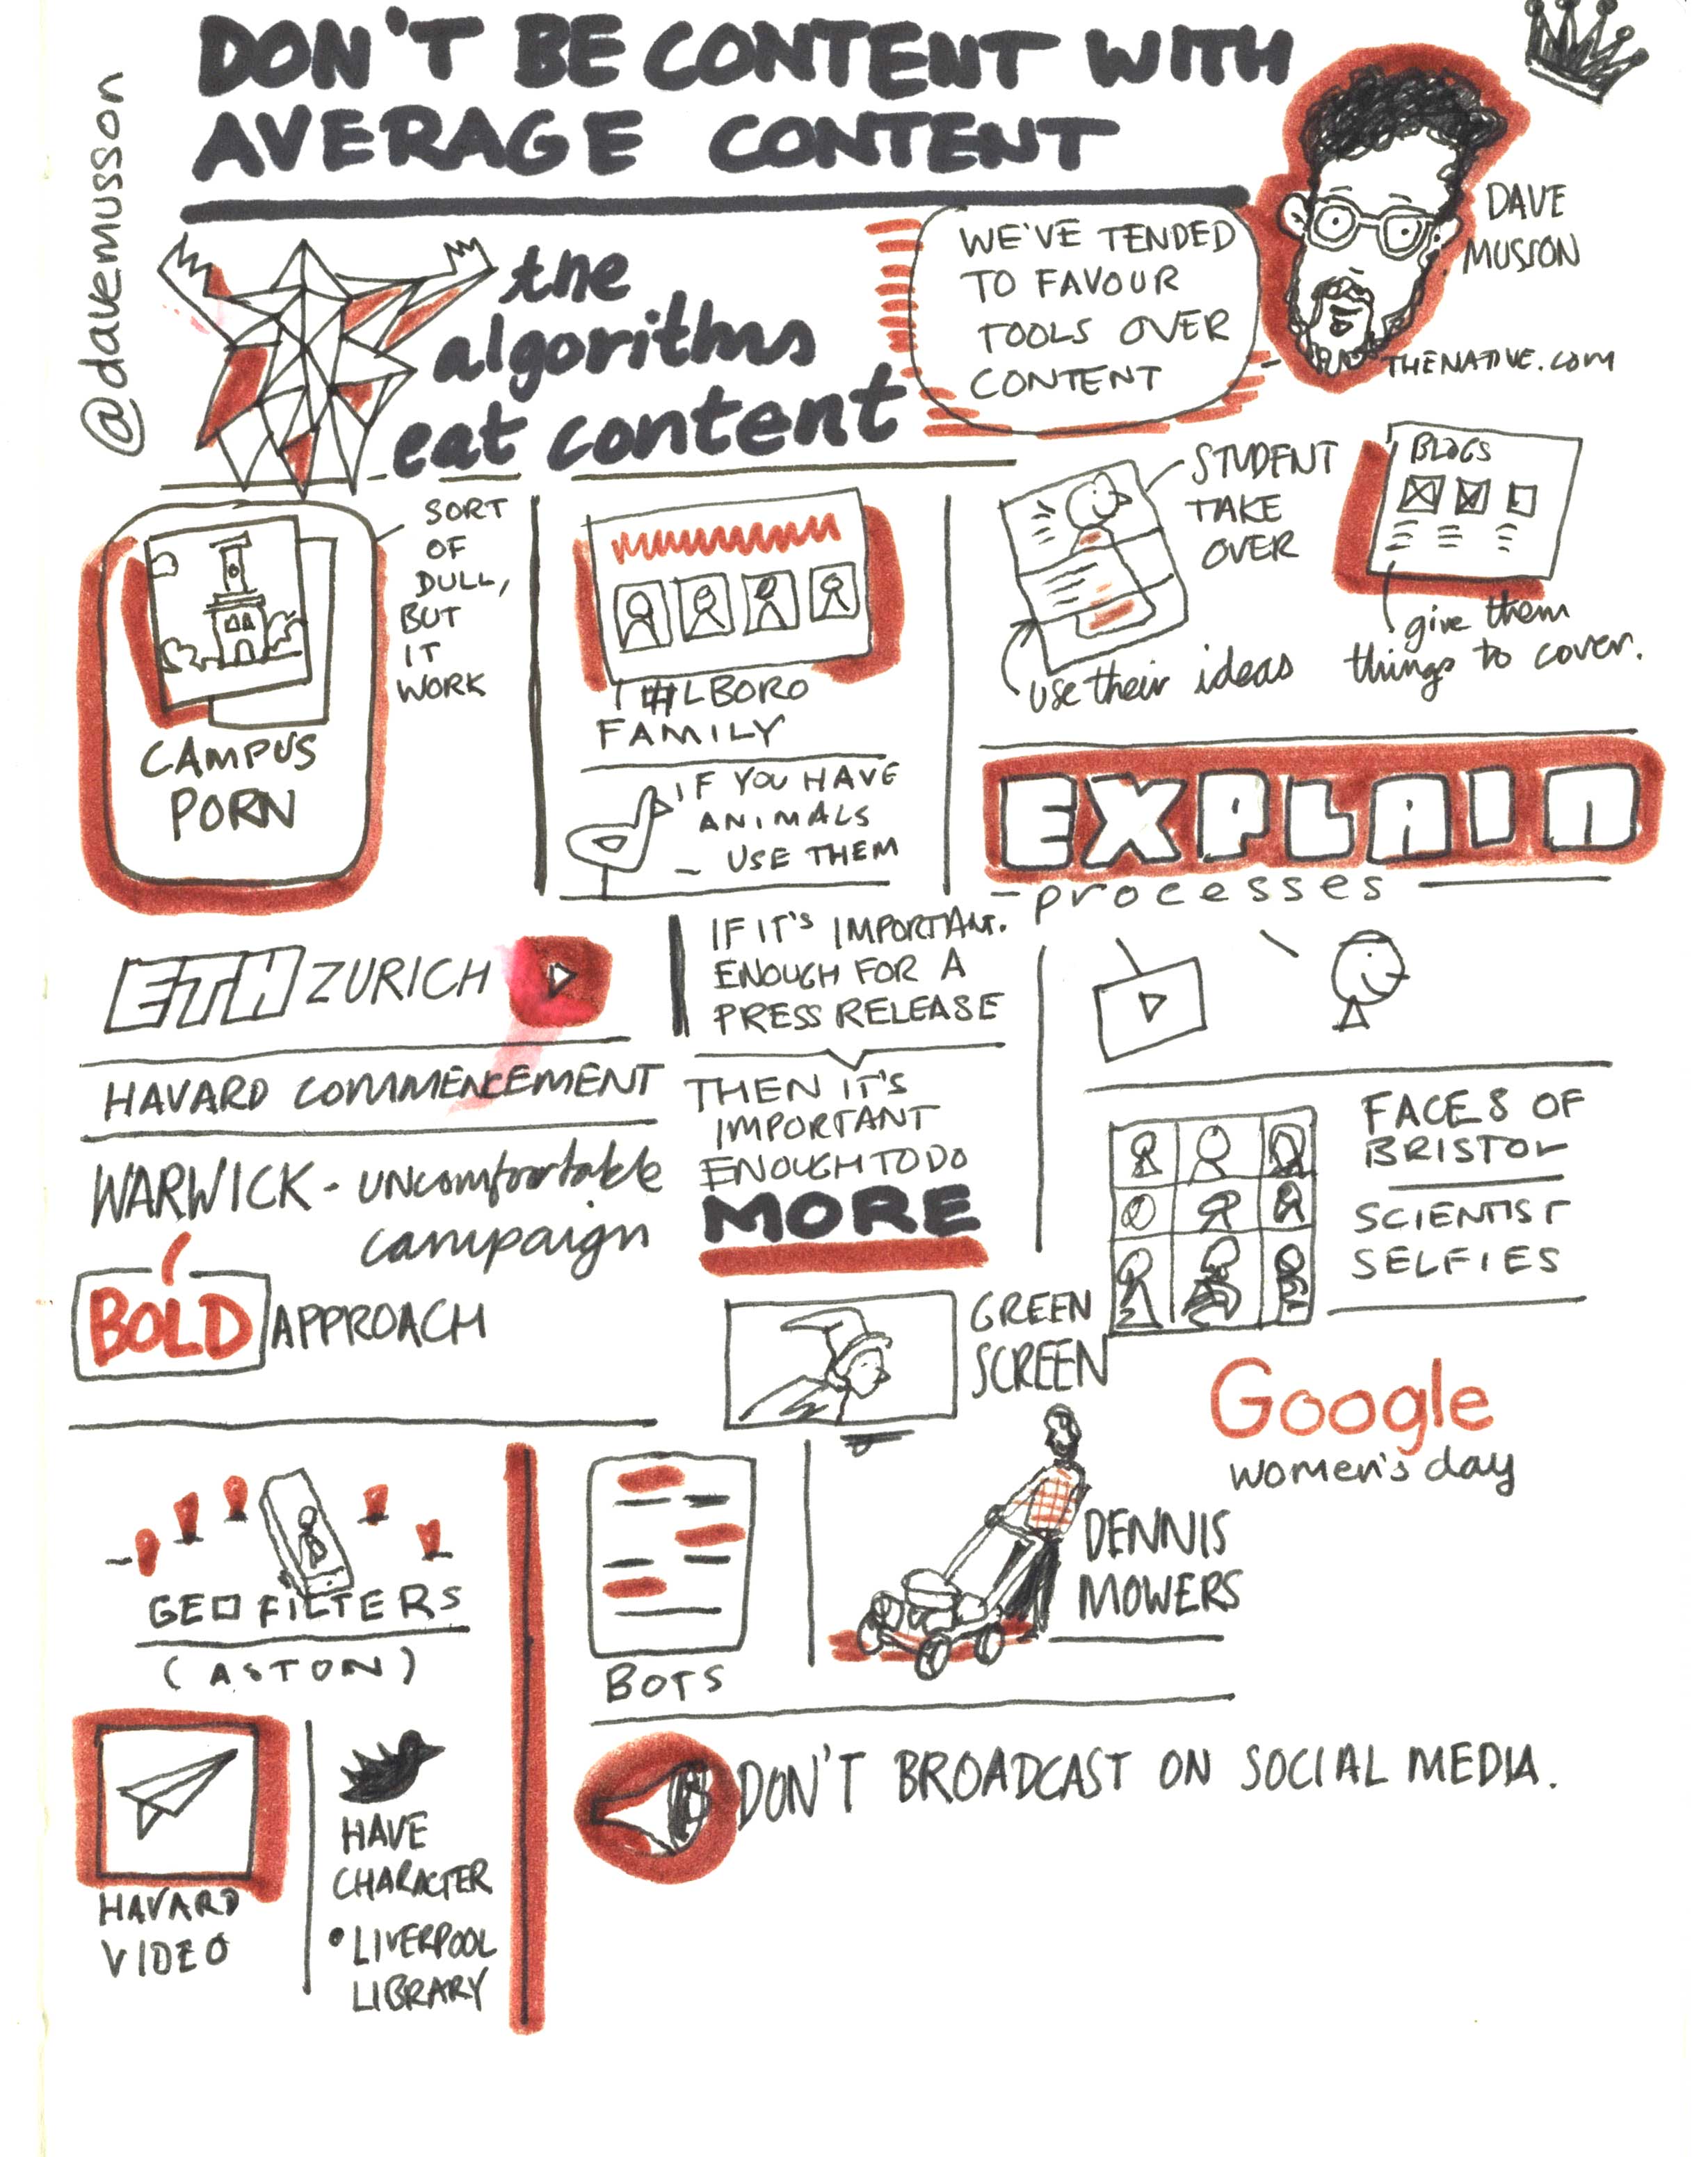 DON'T BE CONTENT WITH
AVERAGE CONTENT
@davemusson
DAVE
MUSSON
THENATIVE.COM
WE'VE TENDED
TO FAVOUR
TOOLS OVER
CONTENT
the
algorithms
eat content
SORT
OF
DULL,
BUT
IT
WORK
CAMPUS
PORN
#LBORO
FAMILY
IF YOU HAVE
ANIMALS
- USE THEM
STUDENT
TAKE
OVER
use their ideas
BLOGS
give them
things to cover.
EXPLAIN
processes
ETH ZURICH
HAVARD COMMENCEMENT
WARWICK - UNcomfortable
campaign
BOLD APPROACH
IF IT'S IMPORTANT.
ENOUGH FOR A
PRESS RELEASE
THEN IT'S
IMPORTANT
ENOUGH TO DO
MORE
FACES OF
BRISTOL
SCIENTIST
SELFIES
GREEN
SCREEN
Google
women's day
GEO FILTERS
(ASTON)
BOTS
DENNIS
MOWERS
HAVARD
VIDEO
HAVE
CHARACTER
• LIVERPOOL
LIBRARY
DON'T BROADCAST ON SOCIAL MEDIA.